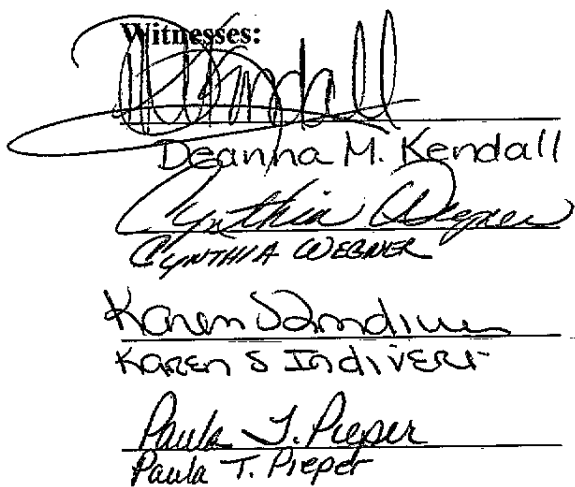 Witnesses:
DMKendall
Deanna M. Kendall
Cynthia Wegner
CYNTHIA WEGNER
Karen S Indiveri
KAREN S INDIVERI
Paula T. Pieper
Paula T. Pieper